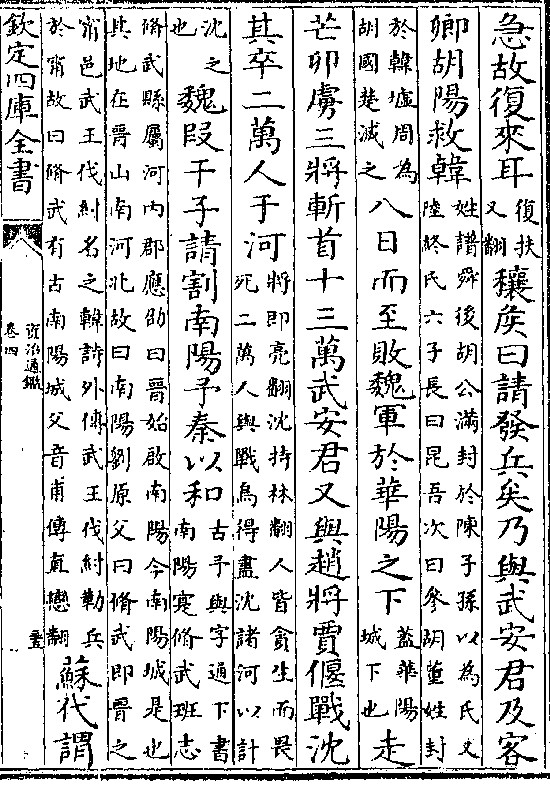 急故復來耳復扶又翻穰侯曰請發兵矣乃與武安君及客
卿胡陽救韓姓譜舜後胡公滿封於陳子孫以為氏又陸終氏六子長曰昆吾次曰參胡董姓封
於韓墟周為胡國楚滅之八日而至敗魏軍於華陽之下蓋華陽城下也走
芒卯虜三將斬首十三萬武安君又與趙將賈偃戰沈
其卒二萬人于河將即亮翻沈持林翻人皆貪生而畏死二萬人與戰烏得盡沈諸河以計
沈之也魏段干子請割南陽予秦以和古予與字通下書南陽寔脩武班志
脩武縣屬河内郡應劭曰晉始啟南陽今南陽城是也其地在晉山南河北故曰南陽劉原父曰脩武即晉之
甯邑武王伐紂名之韓詩外傳武王伐紂勒兵於甯故曰脩武有古南陽城父音甫傳直戀翻蘇代謂
欽定四庫全書
資治通鑑
卷四